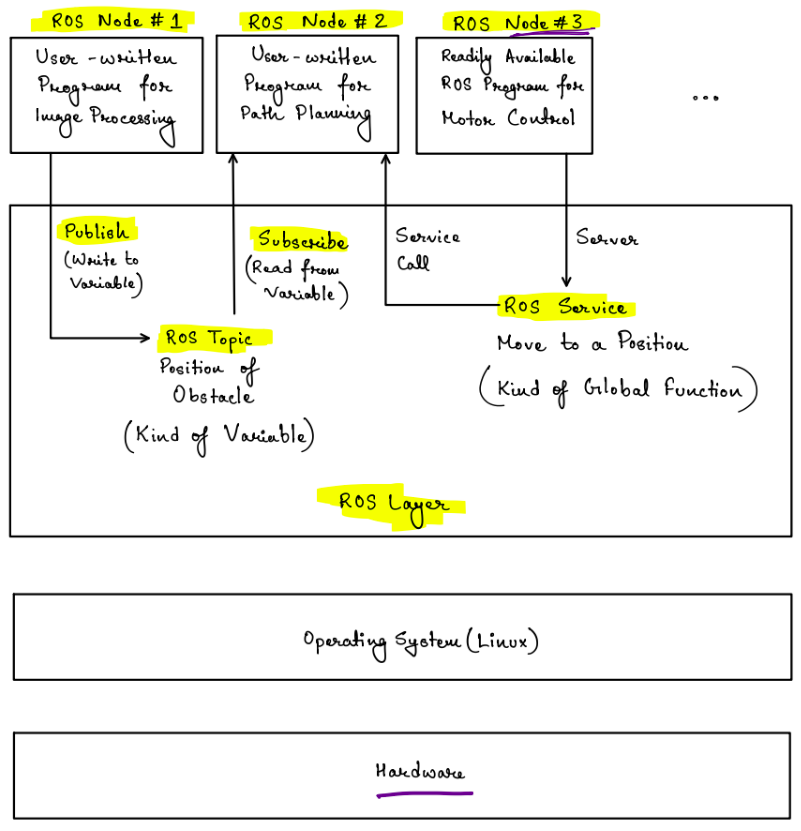 ROS Node # 1
User-written
Program for
Image Processing
ROS Node # 2
User-written
Program for
Path Planning
ROS Node #3
Readily Available
ROS Program for
Motor Control
...
Publish
(Write to
Variable)
Subscribe
(Read from
Variable)
Service
Call
Server
ROS Topic
Position of
Obstacle
(Kind of Variable)
ROS Service
Move to a Position
(Kind of Global Function)
ROS Layer
Operating System (Linux)
Hardware